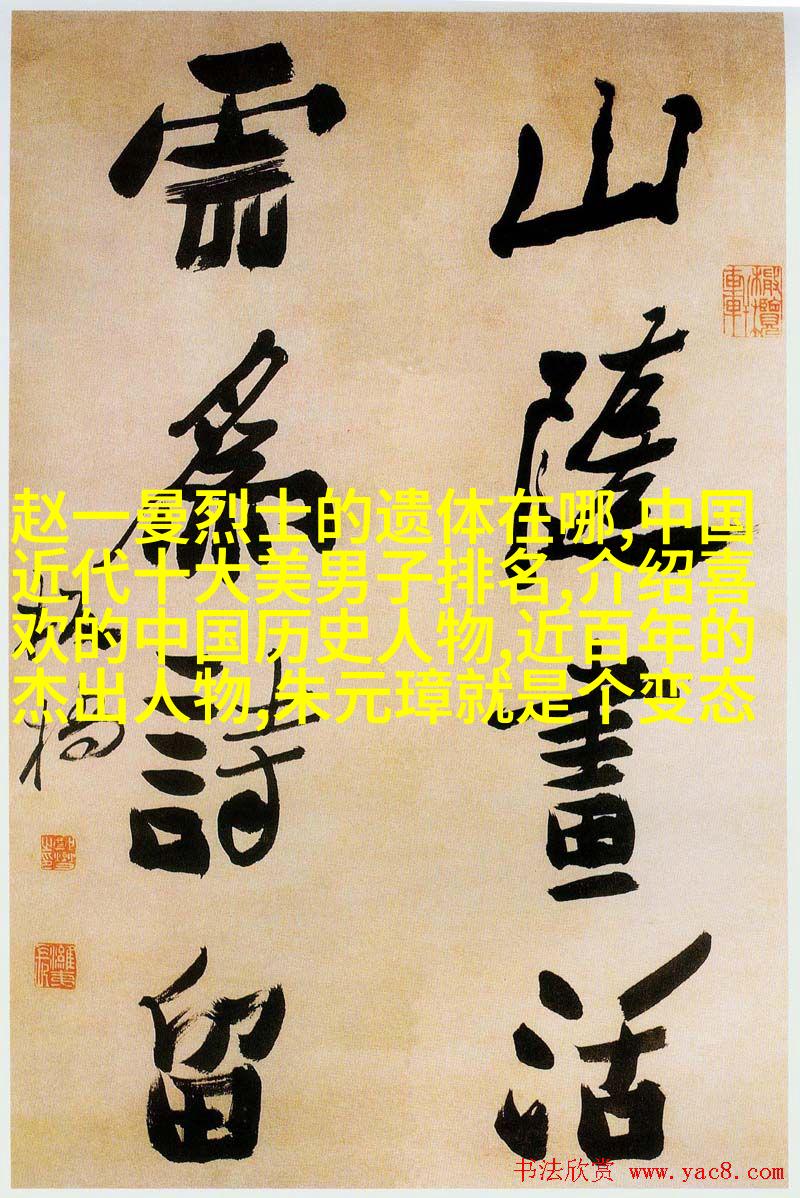 山隨畫活
雲爲詩留
板橋
赵一曼烈士的遗体在哪,中国
近代十大美男子排名,介绍喜
欢的中国历史人物,近百年的
杰出人物,朱元璋就是个变态
书法欣赏 www.yac8.com